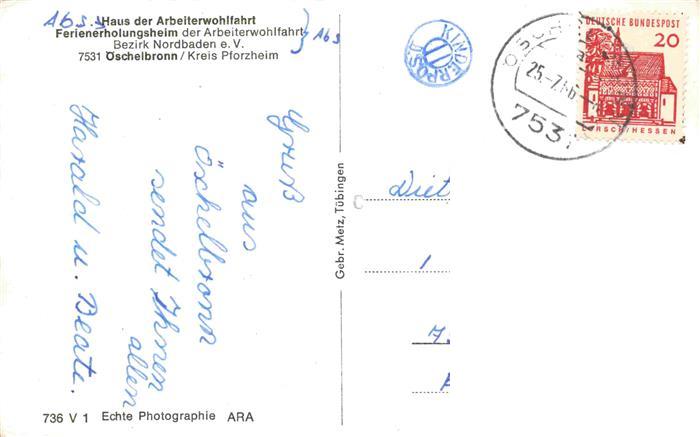 Abs.:
Haus der Arbeiterwohlfahrt
Ferienerholungsheim der Arbeiterwohlfahrt
Bezirk Nordbaden e. V.
7531 Öschelbronn / Kreis Pforzheim
Abs
Gruß
aus
Öschelbronn
sendet Ihnen
allen
Harald u. Beate.
736 V 1 Echte Photographie ARA
Gebr. Metz, Tübingen
KINDERPOST
DEUTSCHE BUNDESPOST
20
LORSCH/HESSEN
25.-7.66
7531
Diet
1
7.